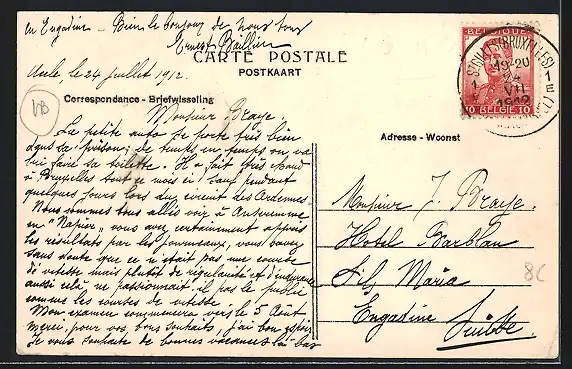 en Engadine – Bien le bonjour de nous tous
Ernest Baillieu
CARTE POSTALE
POSTKAART
Uccle, le 24 Juillet 1912.
VB
Correspondance - Briefwisseling
Monsieur Braye.
La petite auto se porte très bien
dans la prison; de temps en temps on va
lui faire sa toilette. Il a fait très chaud
à Bruxelles tout ce mois ci sauf pendant
quelques jours lors du circuit des Ardennes.
Nous sommes tous allés voir à Anseremme
en "Napier" vous avez certainement appris
les résultats par les journeaux, vous savez
sans doute que ce n'était pas une course
de vitesse mais plutôt de régularité et d'endurance
aussi celà ne passionnait il pas le public
comme les courses de vitesse
Mon examen commencera vers le 5 Août
merci, pour vos bons souhaits, j'ai bon espoir
Je vous souhaite de bonnes vacances là bas
BELGIQUE
10 BELGIË 10
ST GILLES (BRUXELLES)
19-20
24
VII
1912
1 1
E
Adresse - Woonst
Monsieur J. Braye.
Hotel Barblan
Sils Maria
Engadine
Suisse
8C